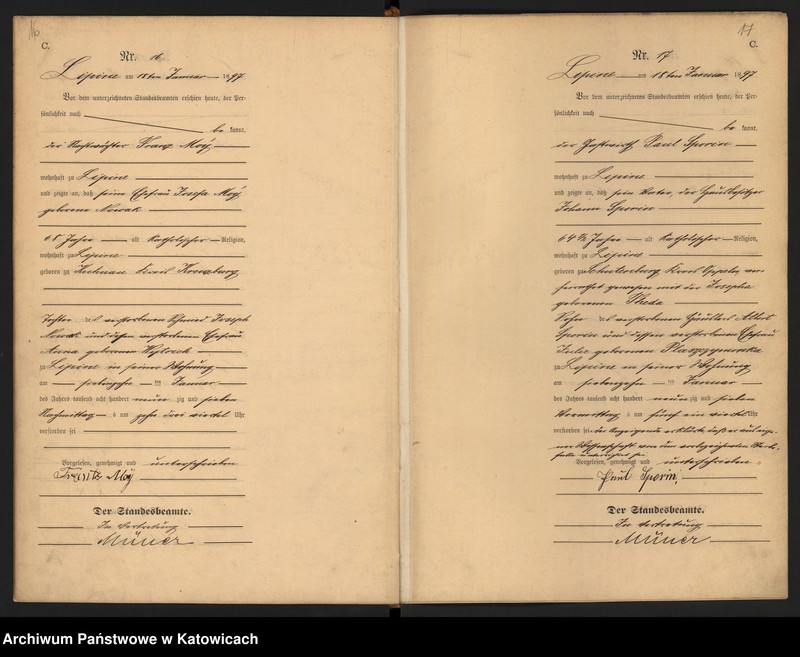 16
C.
Nr. 16
Lipine am 18ten Januar 1897
Vor dem unterzeichneten Standesbeamten erschien heute, der Per-
sönlichkeit nach
be kannt,
der Nachtwächter Franz Moÿ
wohnhaft zu Lipine
und zeigte an, daß seine Ehefrau Josefa Moÿ
geborene Nowak
68 Jahre alt Katholischer Religion,
wohnhaft zu Lipine
geboren zu Kreis Kreuzburg
Tochter des verstorbenen Schmied Joseph
Nowak und dessen verstorbenen Ehefrau
Anna geborenen
zu Lipine in seiner Wohnung
am siebenzehn ten Januar
des Jahres tausend acht hundert neun zig und sieben
Nachmittag s um zehn drei viertel Uhr
verstorben sei
Vorgelesen, genehmigt und unterschrieben
Frantz Moÿ
Der Standesbeamte.
In Vertretung
Müner
17
C.
Nr. 17
Lipine am 18ten Januar 1897
Vor dem unterzeichneten Standesbeamten erschien heute, der Per-
sönlichkeit nach
be kannt,
der Gastwirth Paul Sporin
wohnhaft zu Lipine
und zeigte an, daß sein Vater, der Häusbesitzer
Johann Sporin
64 ½ Jahre alt Katholischer Religion,
wohnhaft zu Lipine
geboren zu Kreis Oppeln, ver-
heirathet gewesen mit der Josepha
geborenen Theda
Sohn des verstorbenen Häusler Albert
Sporin und dessen verstorbenen Ehefrau
geborenen
zu Lipine in seiner Wohnung
am siebenzehn ten Januar
des Jahres tausend acht hundert neun zig und sieben
Vormittag s um fünf ein viertel Uhr
verstorben sei. der Anzeigende erklärte, daß er aus eige-
ner Wissenschaft von dem vorbezeichneten Sterb-
falle unterrichtet sei
Vorgelesen, genehmigt und unterschrieben.
Paul Sporin,
Der Standesbeamte.
In Vertretung
Müner
Archiwum Państwowe w Katowicach